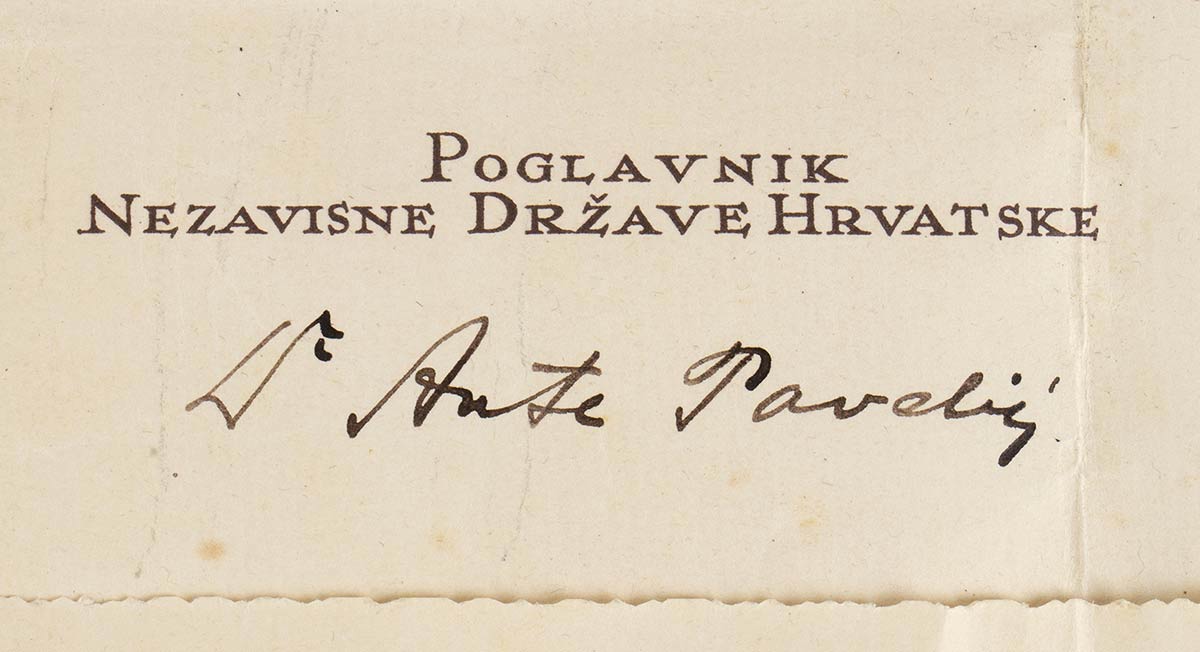 POGLAVNIK
NEZAVISNE DRŽAVE HRVATSKE
Dr Ante Pavelić